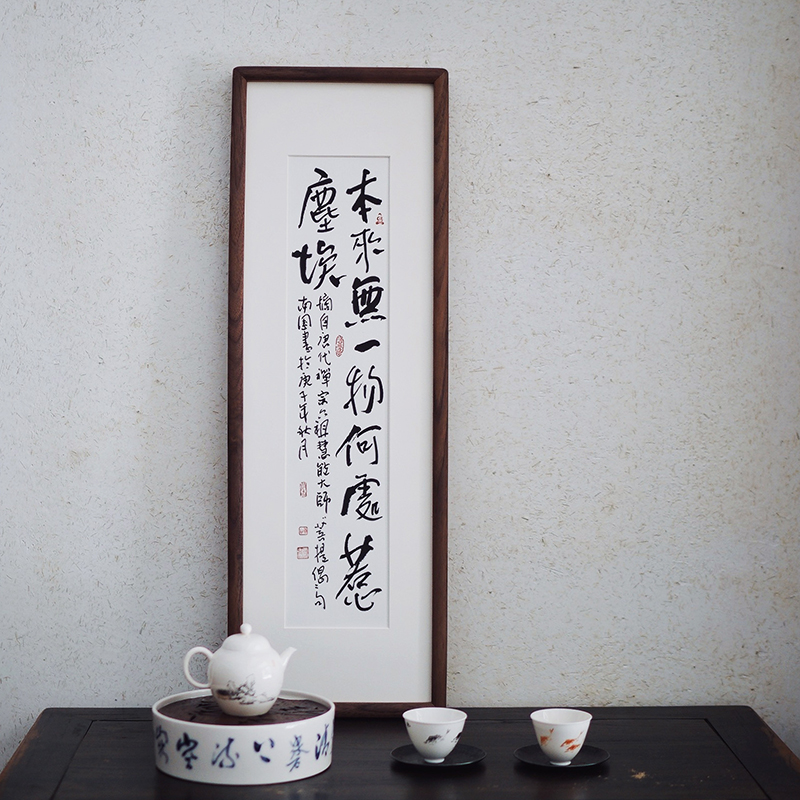 本來無一物何處惹
塵埃
摘自唐代禪宗六祖慧能大師菩提偈句
南園書於庚子年秋月